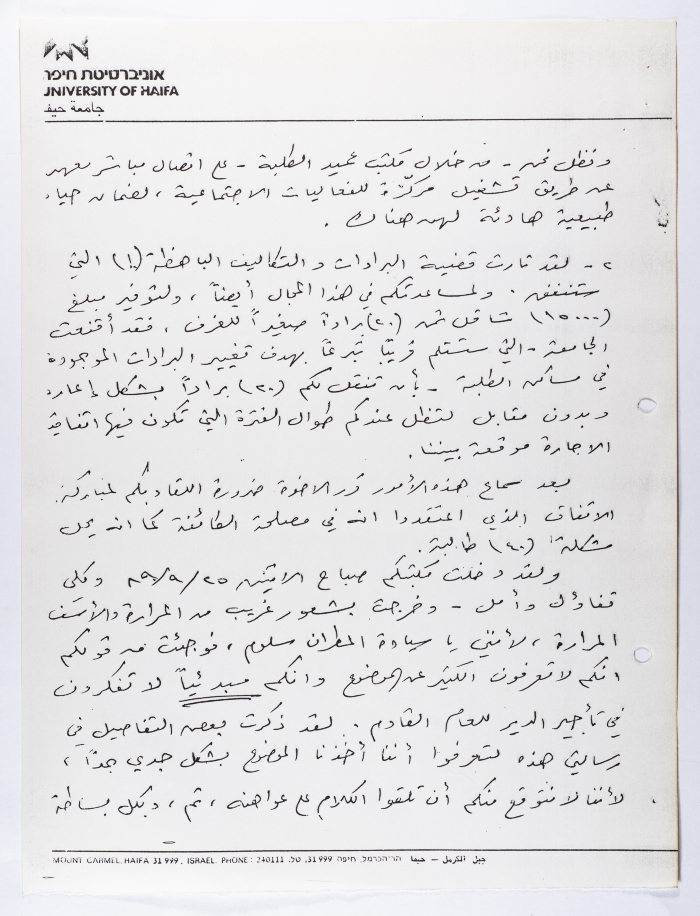 אוניברסיטת חיפה
UNIVERSITY OF HAIFA
جامعة حيفا
ونظل نحن - من خلال مكتب عميد الطلبة - على اتصال مباشر معهن
عن طريق تشغيل مركزة للفعاليات الاجتماعية، لضمان حياة
طبيعية هادئة لهن هناك.
٢- لقد ثارت قضية البرادات والتكاليف الباهظة (!) التي
ستنفقن. ولمساعدتكم في هذا المجال أيضاً، ولتوفير مبلغ
(١٥٠٠٠) شاقل ثمن (٢٠) براداً صغيراً للغرف، فقد أقنعت
الجامعة - التي ستستلم قريبًا تبرعًا بهدف تغيير البرادات الموجودة
في مساكن الطلبة - بأن تنقل لكم (٢٠) براداً بشكل إعارة
وبدون مقابل لتظل عندكم طوال الفترة التي تكون فيها اتفاقية
الاجارة موقعة بيننا.
بعد سماع هذه الأمور قرر الاخوة ضرورة اللقاء بكم لمباركة
الاتفاق الذي اعتقدوا انه في مصلحة الطائفة كما انه يحل
مشكلة (٤٠) طالبة.
ولقد دخلت مكتبكم صباح الاثنين ٨٩/٩/٢٥ وكلي
تفاؤل وأمل - وخرجت بشعور غريب من المرارة والأسف
المرارة، لأنني يا سيادة المطران سلوم، فوجئت من قولكم
انكم لا تعرفون الكثير عن الموضوع وانكم مبدئياً لا تفكرون
في تأجير الدير للعام القادم. لقد ذكرت بعض التفاصيل في
رسالتي هذه لتعرفوا أننا أخذنا الموضوع بشكل جدي جداً،
لأننا لا نتوقع منكم أن تلقوا الكلام على عواهنه، ثم، وبكل بساطة
MOUNT CARMEL, HAIFA 31 999, ISRAEL. PHONE: 240111 הר־הכרמל, חיפה 31 999, טל. جبل الكرمل - حيفا